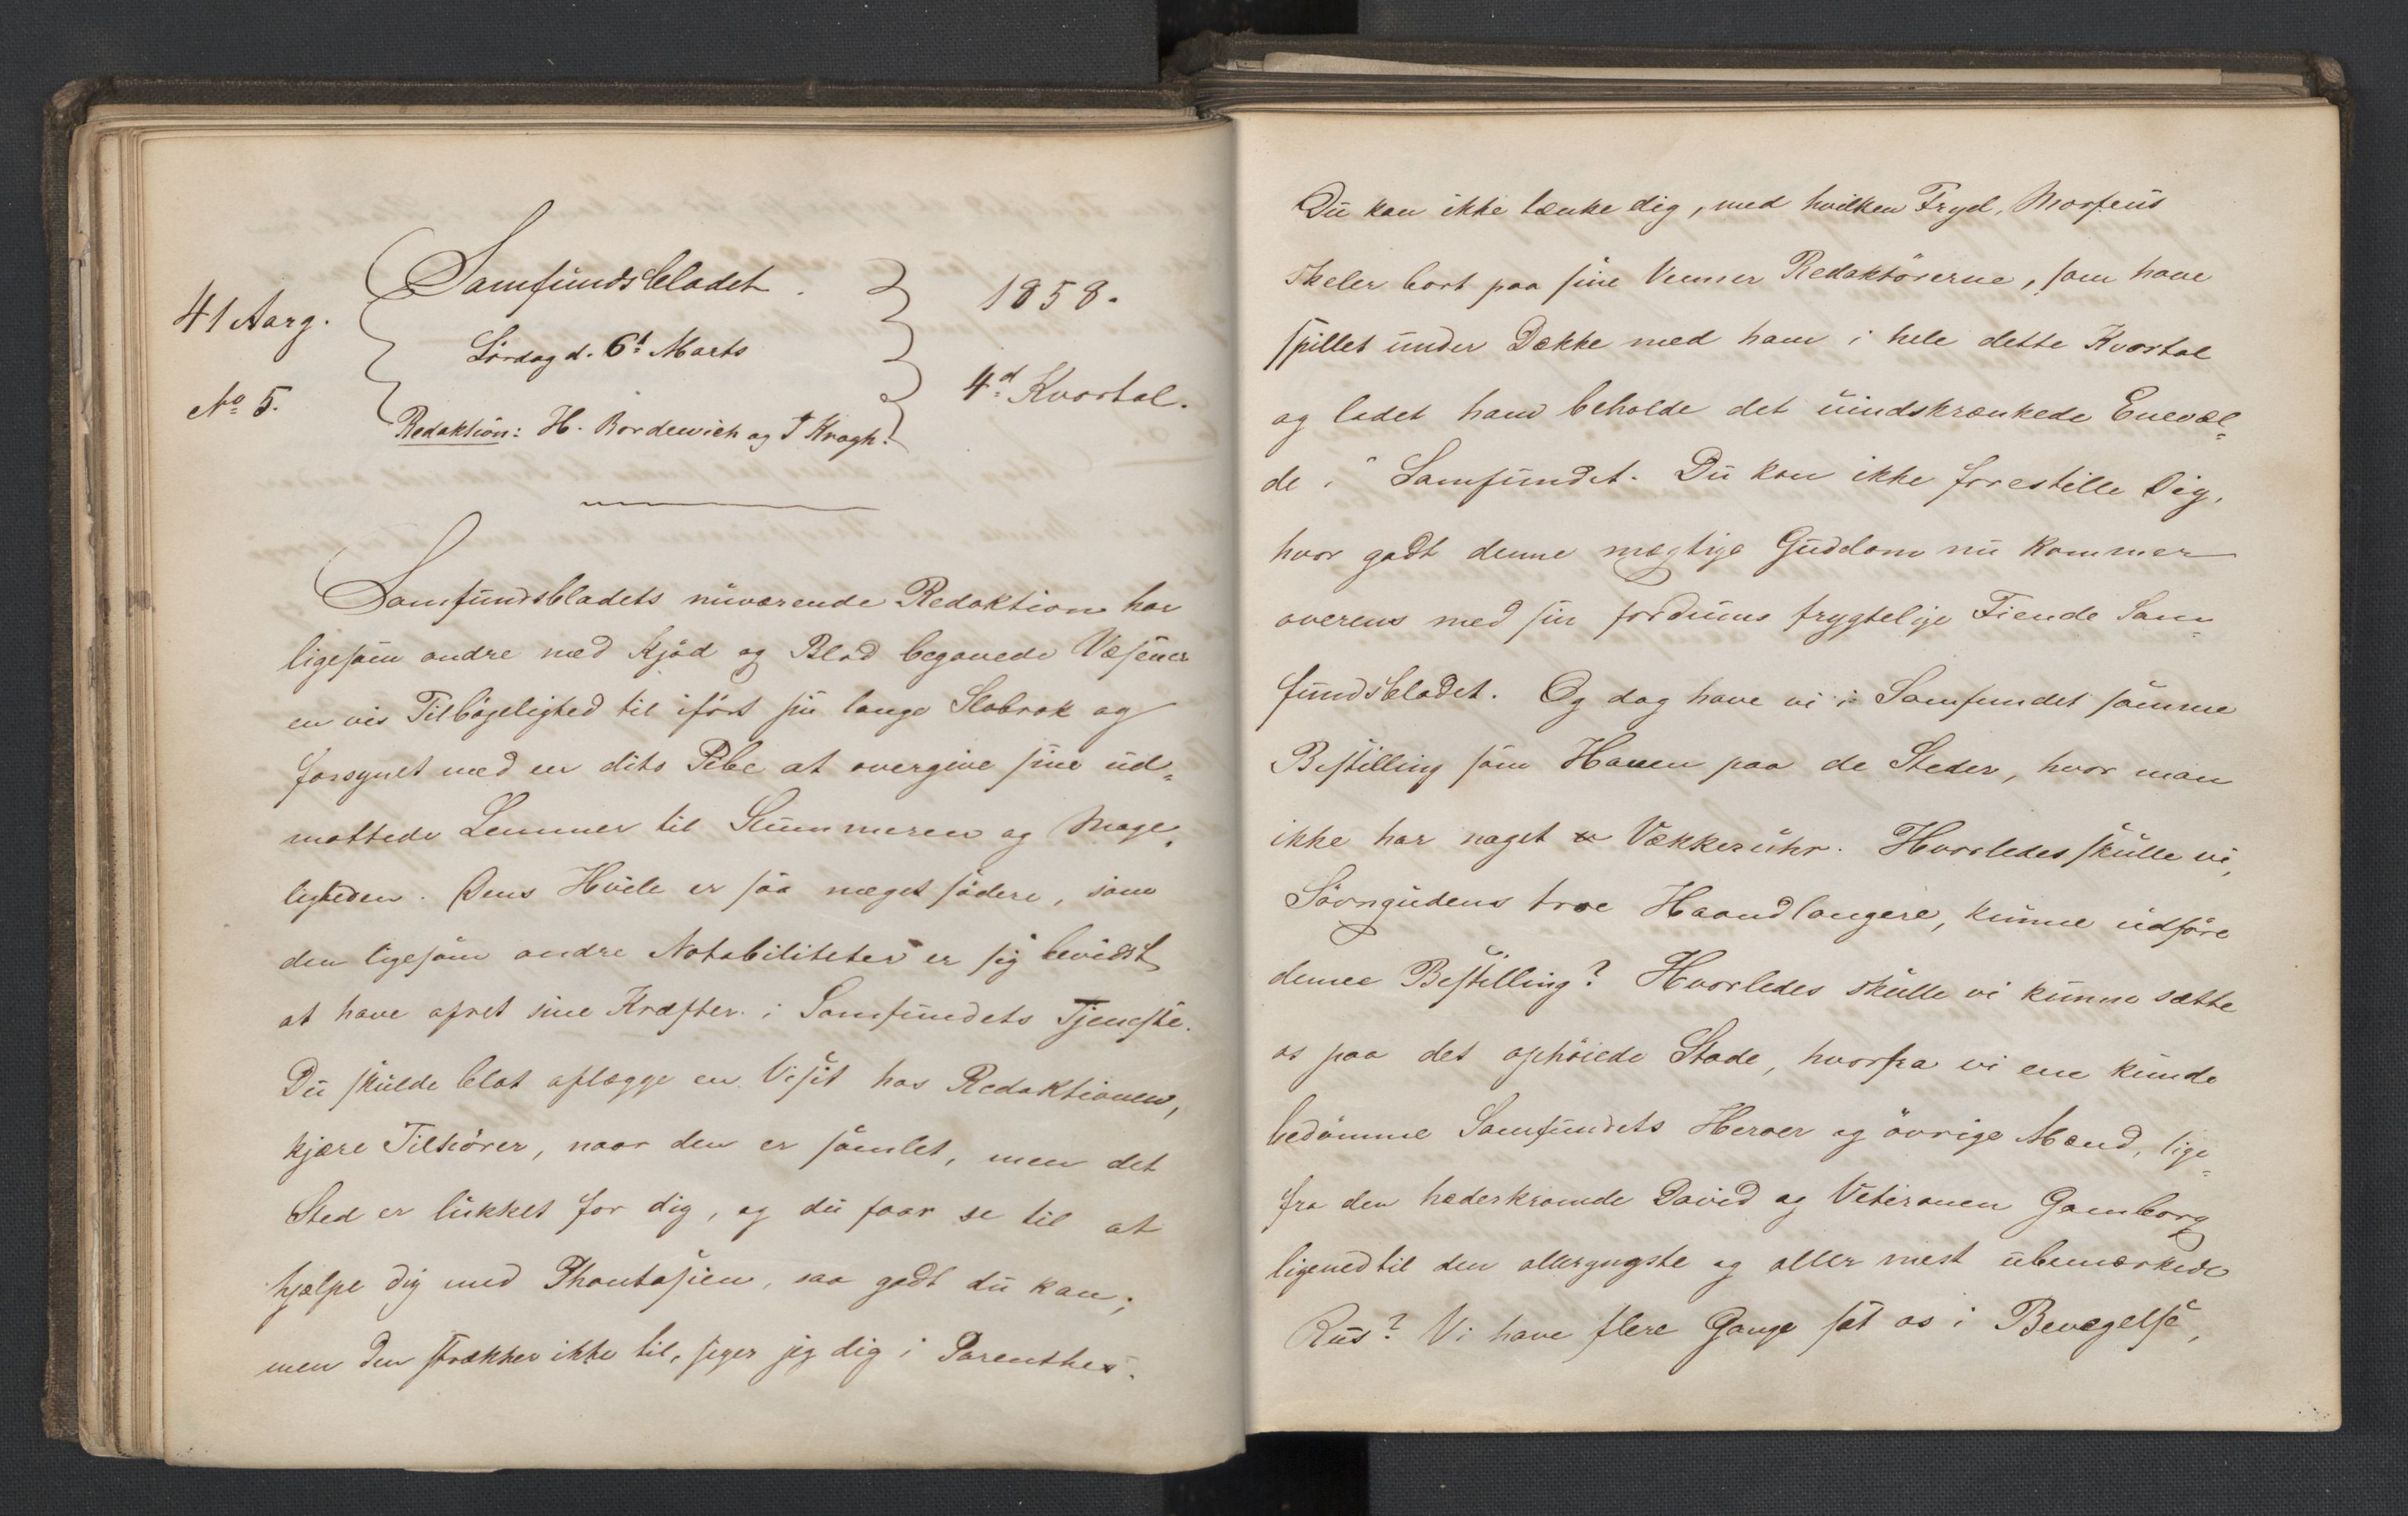 Samfundsbladet.
41 Aarg.
1858.
Lørdag d. 6t Marts
No 5.
4d Kvartal.
Redaktion: H. Bordewich og T Kragh.
Samfundsbladets nuværende Redaktion har
ligesom andre med Kjød og Blod begavede Væsener
en vis Tilbøjelighed til iført sin lange Slobrok og
forsynet med en dito Pibe at overgive sine ud-
mattede Lemmer til Slummeren og Mage-
ligheden. Dens Hvile er saa meget sødere, som
den ligesom andre Notabiliteter er sig bevidst
at have ofret sine Kræfter i Samfundets Tjeneste.
Du skulde blot aflægge en Visit hos Redaktionen,
kjære Tilhører, naar den er samlet, men det
Sted er lukket for dig, og du faar se til at
hjælpe dig med Phantasien, saa godt du kan;
men den strækker ikke til, siger jeg dig i Parenthes.
Du kan ikke tænke dig, med hvilken Fryd, Morfeus
skeler bort paa sine Venner Redaktørerne, som have
spillet under Dække med ham i hele dette Kvartal
og ladet ham beholde det uindskrænkede Enevæl-
de i Samfundet. Du kan ikke forestille Dig,
hvor godt denne mægtige Guddom nu kommer
overens med sin fordums frygtelige Fiende Sam-
fundsbladet. Og dog have vi i Samfundet samme
Bestilling som Hanen paa de Steder, hvor man
ikke har noget Vækkeruhr. Hvorledes skulle vi,
Søvngudens troe Haandlangere, kunne udføre
denne Bestilling? Hvorledes skulle vi kunne sætte
os paa det ophøiede Stade, hvorfra vi ene kunde
bedømme Samfundets Heroer og øvrige Mænd, lige-
fra den hæderkronede David og Veteranen Gamborg
ligenedtil den alleryngste og aller mest ubemærkede
Rus? Vi have flere Gange sat os i Bevægelse,